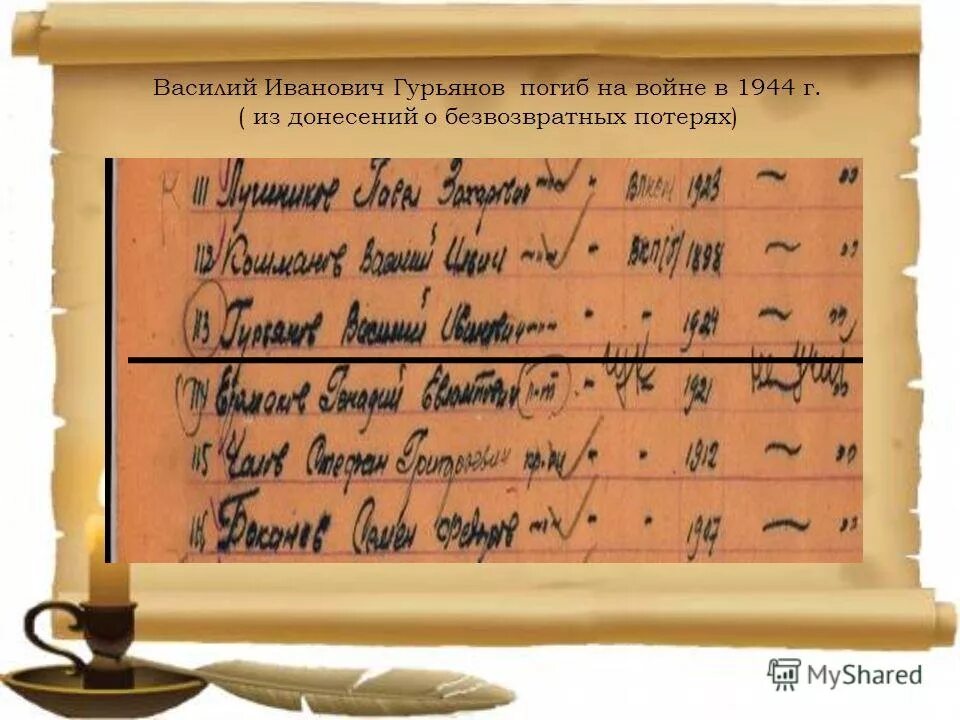 Василий Иванович Гурьянов погиб на войне в 1944 г.
( из донесений о безвозвратных потерях)
111 Пушников Павел Захарович —"— " ВЛКСМ 1923 ~ "
112 Кошманов Василий Ивич —"— " ВКП(б) 1898 ~ "
113 Гурьянов Василий Иванович —"— " " 1924 ~ "
114 Ермаков Генадий л-т " 1921 "
115 Чалов Степан Григорьевич " " 1912 ~ "
116 Баканов Семен —"— " " 1907 ~ "
MyShared